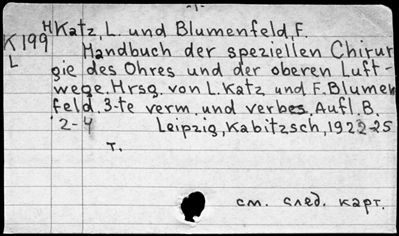 -1-
H Katz, L. und Blumenfeld, F.
K199 Handbuch der speziellen Chirur
L gie des Ohres und der oberen Luft-
wege. Hrsg. von L. Katz und F. Blumen
feld. 3-te verm. und verbes. Aufl. B.
2-4 Leipzig, Kabitzsch, 1922-25
т.
см. след. карт.